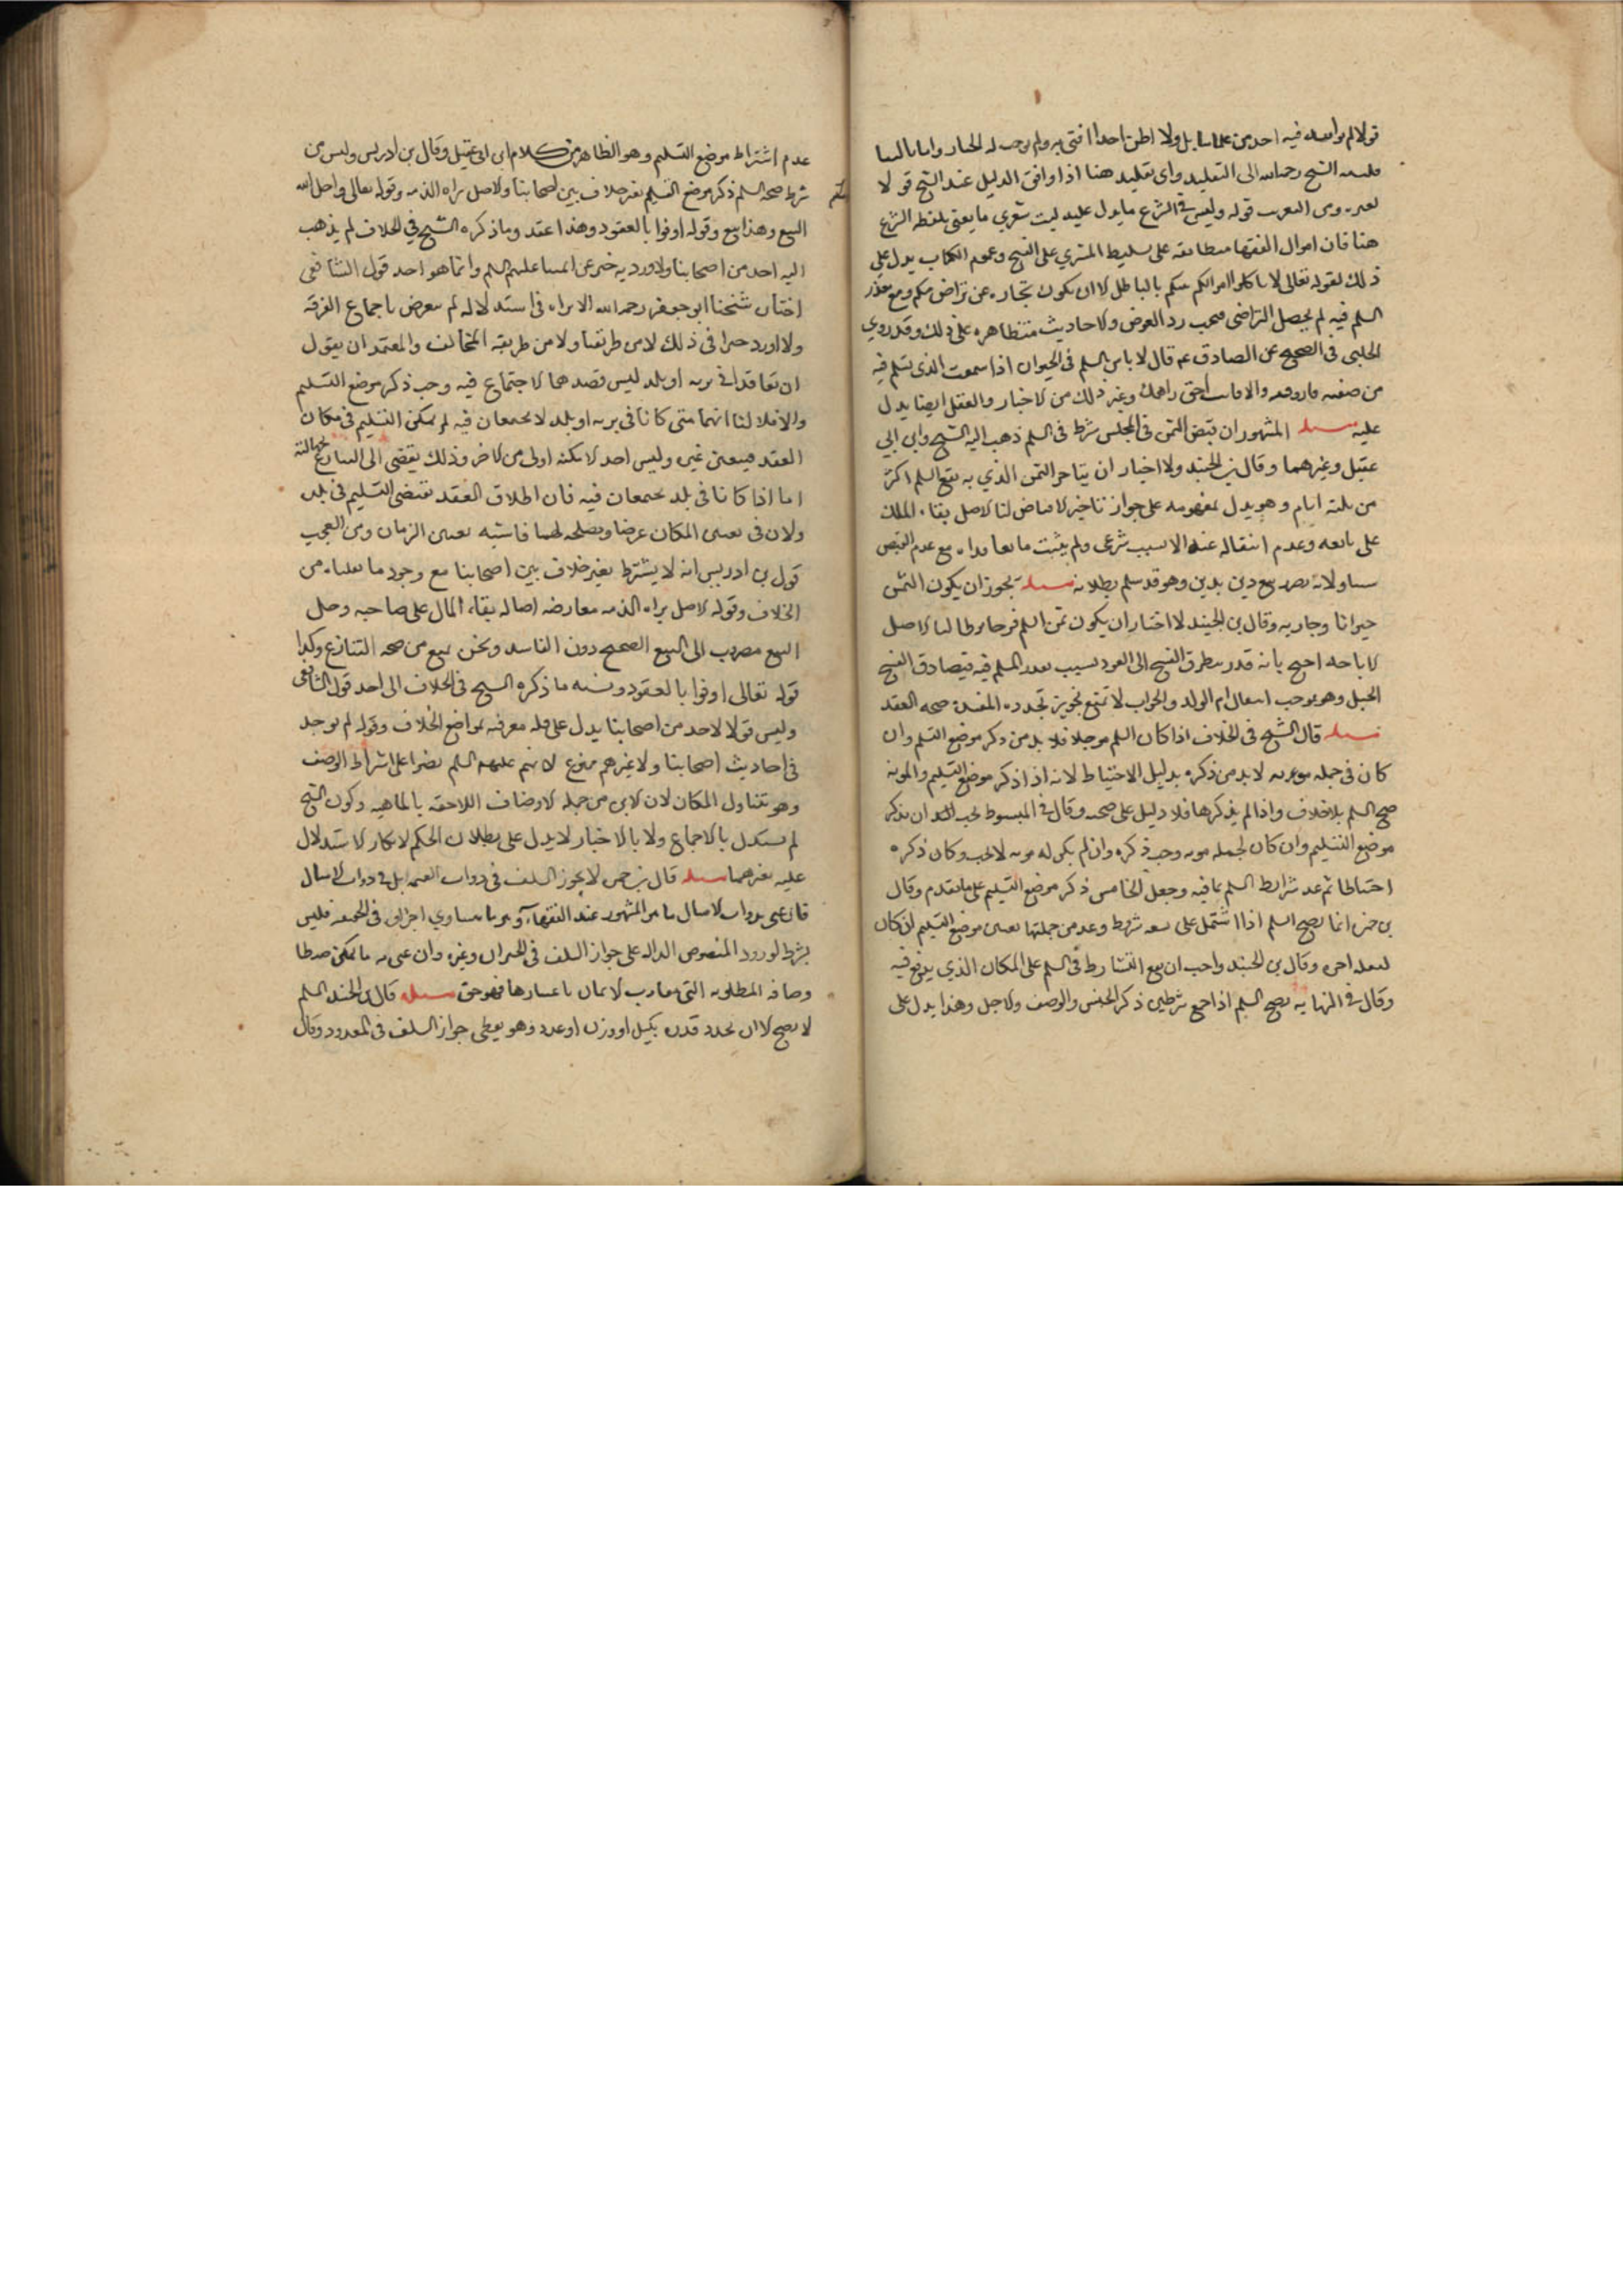 قولا لم يوافقه فيه احد من علمائنا بل ولا اظن احدا افتى به ولم يوجب له الخيار واما
فلنسبه الشيخ رحمه الله الى التقليد واى تقليد هنا اذا وافق الدليل عند الشيخ قولا
لغيره ومن الغريب قوله وليس في الشرع ما يدل عليه ليت شعري ما يعنى بلفظه الشرع
هنا فان اموال الفقها متطابقه على تسليط المشتري على الفسخ وعموم الكتاب يدل على
ذلك لقوله تعالى لا تاكلوا اموالكم بينكم بالباطل الا ان يكون تجاره عن تراض منكم ومع تعذر
السلم فيه لم يحصل التراضى فيجب رد العوض والاحاديث متظاهره على ذلك وقد روي
الحلبى فى الصحيح عن الصادق ع قال لا باس بالسلم فى الحيوان اذا سميت الذى يسلم فيه
من صفته فان وفيته والا فانت احق بدراهمك وغير ذلك من الاخبار والعقل ايضا يدل
عليه مسله المشهور ان قبض الثمن فى المجلس شرط فى السلم ذهب اليه الشيخ وابن ابي
عقيل وغيرهما وقال بن الجنيد ولا اختيار ان يتاخر الثمن الذي به يقع السلم اكثر
من ثلثه ايام وهو يدل بمفهومه على جواز تاخير الاقباض لنا الاصل بقاء الملك
على بايعه وعدم انتقاله عنه الا بسبب شرعى ولم يثبت ما تعاقداه مع عدم القبض
سببا ولانه يصير بيع دين بدين وهو قد سلم بطلانه مسله يجوز ان يكون الثمن
حيوانا وجاريه وقال بن الجنيد لا اختار ان يكون ثمن السلم فرجا يوطا لنا الاصل
الاباحه احتج بانه قد يتطرق الفسخ الى العقود بسبب تعذر المسلم فيه فيصادف الفسخ
الحبل وهو يوجب انتقال ام الولد والجواب لا تمنع تجويز تجدد المفسده صحه العقد
مسله قال الشيخ فى الخلاف اذا كان السلم موجلا فلا بد من ذكر موضع التسليم وان
كان فى حمله مونه لا بد من ذكره بدليل الاحتياط لانه اذا ذكر موضع التسليم والمونه
صح السلم بلا خلاف واذا لم يذكرها فلا دليل على صحته وقال فى المبسوط يجب ان يذكر
موضع التسليم وان كان لحمله مونه وجب ذكره وان لم يكن له مونه لا يجب وكان ذكره
احتياطا ثم عد شرايط السلم ثمانيه وجعل الخامس ذكر موضع التسليم على ما تقدم وقال
بن حمزه انما يصح السلم اذا اشتمل على تسعه شروط وعد من جملتها تعيين موضع التسليم ان كان
لنقله اجره وقال بن الجنيد واحب ان يقع التشارط فى السلم على المكان الذي يدفع فيه
وقال فى النهايه يصح السلم اذا جمع شرطين ذكر الجنس والوصف والاجل وهذا يدل على
عدم اشتراط موضع التسليم وهو الظاهر من كلام ابن ابى عقيل وقال بن ادريس وليس من
شرط صحه السلم ذكر موضع التسليم بغير خلاف بين اصحابنا والاصل براه الذمه وقوله تعالى واحل الله
البيع وهذا بيع وقوله اوفوا بالعقود وهذا عقد وما ذكره الشيخ في الخلاف لم يذهب
اليه احد من اصحابنا ولا ورد به خبر عن ايمتنا عليهم السلم وانما هو احد قول الشافعى
اختاره شيخنا ابو جعفر رحمه الله الا تراه فى استدلاله لم يتعرض باجماع الفرقه
ولا اورد خبرا فى ذلك لا من طريقنا ولا من طريقه المخالف والمعتمد ان يقول
ان تعاقدا في بريه او بلد ليس قصدهما الاجتماع فيه وجب ذكر موضع التسليم
والا فلا لنا انهما متى كانا فى بريه او بلد لا يجتمعان فيه لم يمكن التسليم فى مكان
العقد فيتعين غيره وليس احد الامكنه اولى من الاخر وذلك يفضى الى التنازع لجهالته
اما اذا كانا فى بلد يجتمعان فيه فان اطلاق العقد يقتضى التسليم فى بلده
ولان فى تعيين المكان غرضا ومصلحه لهما فاشبه تعيين الزمان ومن العجب
قول بن ادريس انه لا يشترط بغير خلاف بين اصحابنا مع وجود ما نقلناه من
الخلاف وقوله الاصل براه الذمه معارضه اصاله بقاء المال على صاحبه وحل
البيع مصروف الى البيع الصحيح دون الفاسد ونحن نمنع من صحه التنازع وكذا
قوله تعالى اوفوا بالعقود ونسبه ما ذكره الشيخ فى الخلاف الى احد قول الشافعى
وليس قولا لاحد من اصحابنا يدل على قله معرفته بمواضع الخلاف وقوله لم يوجد
فى احاديث اصحابنا ولا غيرهم ممنوع لانهم عليهم السلم نصوا على اشتراط الوصف
وهو يتناول المكان لان الاين من جمله الاوصاف اللاحقه بالماهيه وكون الشيخ
لم يستدل بالاجماع ولا بالاخبار لا يدل على بطلان الحكم لامكان الاستدلال
عليه بغيرهما مسله قال بن حمزه لا يجوز السلف فى ذوات القيمه بل فى ذوات الامثال
فان عنى بذوات الامثال ما هو المشهور عند الفقهاء وهو ما يتساوي اجزاوه فى القيمه فليس
بشرط لورود النصوص الداله على جواز السلف فى الحيوان وغيره وان عنى به ما يمكن ضبط
اوصافه المطلوبه التى يتفاوت الاثمان باعتبارها فهو حق مسله قال بن الجنيد السلم
لا يصح الا ان يحدد قدره بكيل او وزن او عدد وهو يعطى جواز السلف فى المعدود وقال